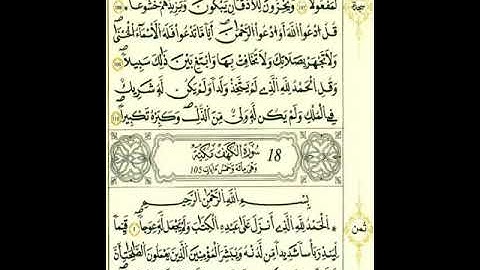 سجدة
لَمَفْعُولًا وَيَخِرُّونَ لِلْأَذْقَانِ يَبْكُونَ وَيَزِيدُهُمْ خُشُوعًا
قُلِ ادْعُوا اللَّهَ أَوِ ادْعُوا الرَّحْمَٰنَ أَيًّا مَّا تَدْعُوا فَلَهُ الْأَسْمَاءُ الْحُسْنَىٰ
وَلَا تَجْهَرْ بِصَلَاتِكَ وَلَا تُخَافِتْ بِهَا وَابْتَغِ بَيْنَ ذَٰلِكَ سَبِيلًا
وَقُلِ الْحَمْدُ لِلَّهِ الَّذِي لَمْ يَتَّخِذْ وَلَدًا وَلَمْ يَكُن لَّهُ شَرِيكٌ
فِي الْمُلْكِ وَلَمْ يَكُن لَّهُ وَلِيٌّ مِّنَ الذُّلِّ وَكَبِّرْهُ تَكْبِيرًا
18 سُورَةُ الْكَهْفِ مَكِّيَّة
وَهْيَ مِائَة وَخَمْس ءَايَات 105
بِسْمِ اللَّهِ الرَّحْمَٰنِ الرَّحِيمِ
ثمن
الْحَمْدُ لِلَّهِ الَّذِي أَنزَلَ عَلَىٰ عَبْدِهِ الْكِتَابَ وَلَمْ يَجْعَل لَّهُ عِوَجًا قَيِّمًا
لِّيُنذِرَ بَأْسًا شَدِيدًا مِّن لَّدُنْهُ وَيُبَشِّرَ الْمُؤْمِنِينَ الَّذِينَ يَعْمَلُونَ الصَّالِحَاتِ أَنَّ